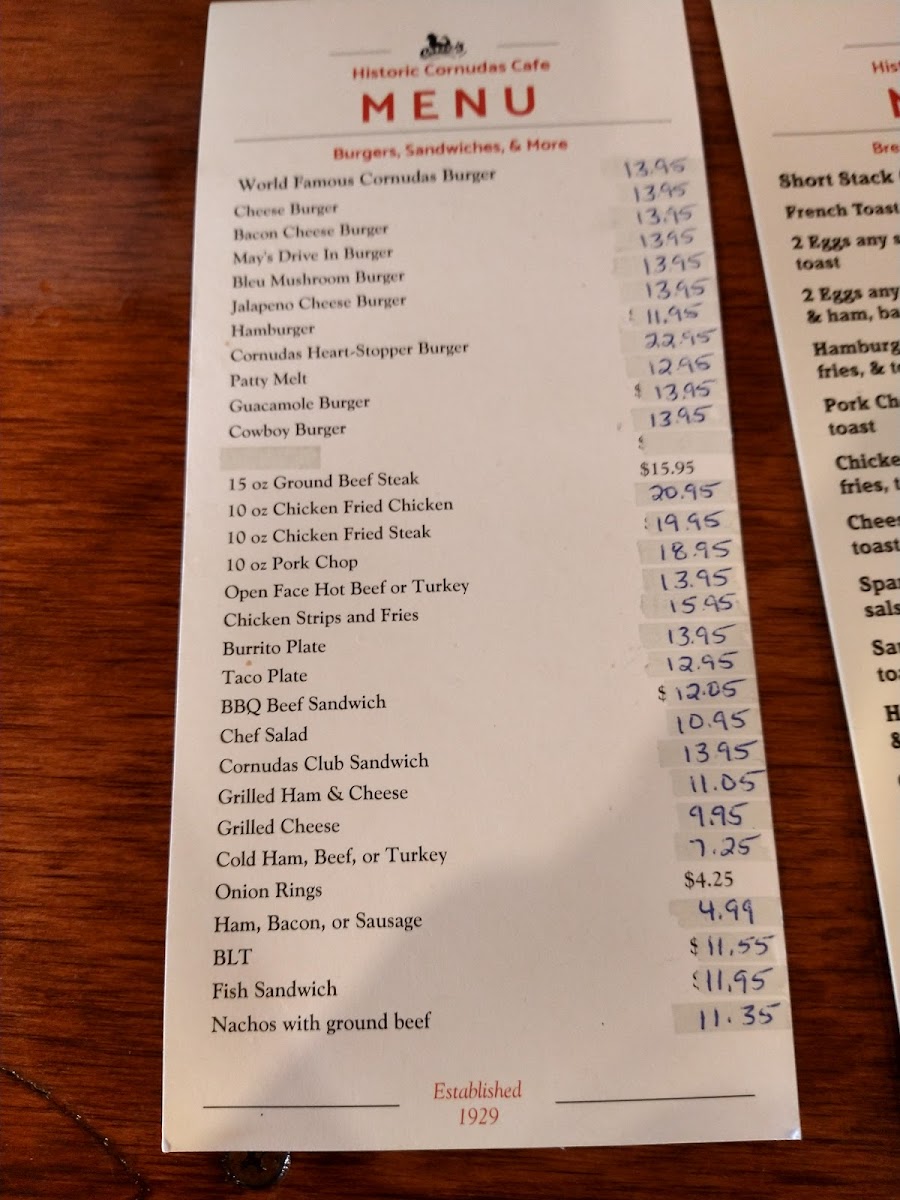 Historic Cornudas Cafe
MENU
Burgers, Sandwiches, & More
World Famous Cornudas Burger 13.95
Cheese Burger 13.95
Bacon Cheese Burger 13.95
May's Drive In Burger 13.95
Bleu Mushroom Burger 13.95
Jalapeno Cheese Burger 13.95
Hamburger 11.95
Cornudas Heart-Stopper Burger 22.95
Patty Melt 12.95
Guacamole Burger $ 13.95
Cowboy Burger 13.95
$
15 oz Ground Beef Steak $15.95
10 oz Chicken Fried Chicken 20.95
10 oz Chicken Fried Steak 19.95
10 oz Pork Chop 18.95
Open Face Hot Beef or Turkey 13.95
Chicken Strips and Fries 15.95
Burrito Plate 13.95
Taco Plate 12.95
BBQ Beef Sandwich $ 12.05
Chef Salad 10.95
Cornudas Club Sandwich 13.95
Grilled Ham & Cheese 11.05
Grilled Cheese 9.95
Cold Ham, Beef, or Turkey 7.25
Onion Rings $4.25
Ham, Bacon, or Sausage 4.99
BLT $ 11.55
Fish Sandwich $11.95
Nachos with ground beef 11.35
Established
1929
Short Stack
French Toast
2 Eggs any
toast
2 Eggs any
& ham,
fries, &
Pork
toast
fries,
toast